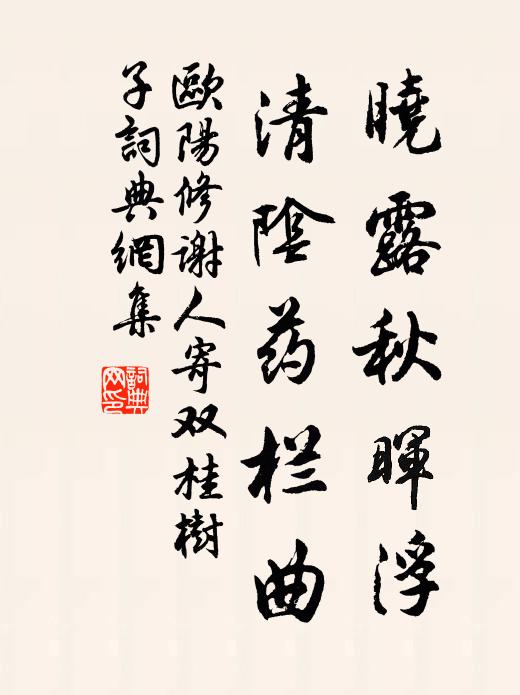 曉露秋暉浮
清陰药栏曲
歐陽修谢人寄双桂樹
子詞典網集
詞典
网印